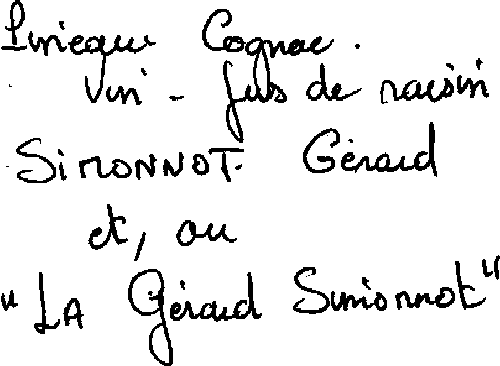 Cognac.
Vin - Jus de raisin
SIMONNOT. Gérard
et, ou
"LA Gérard Simonnot"